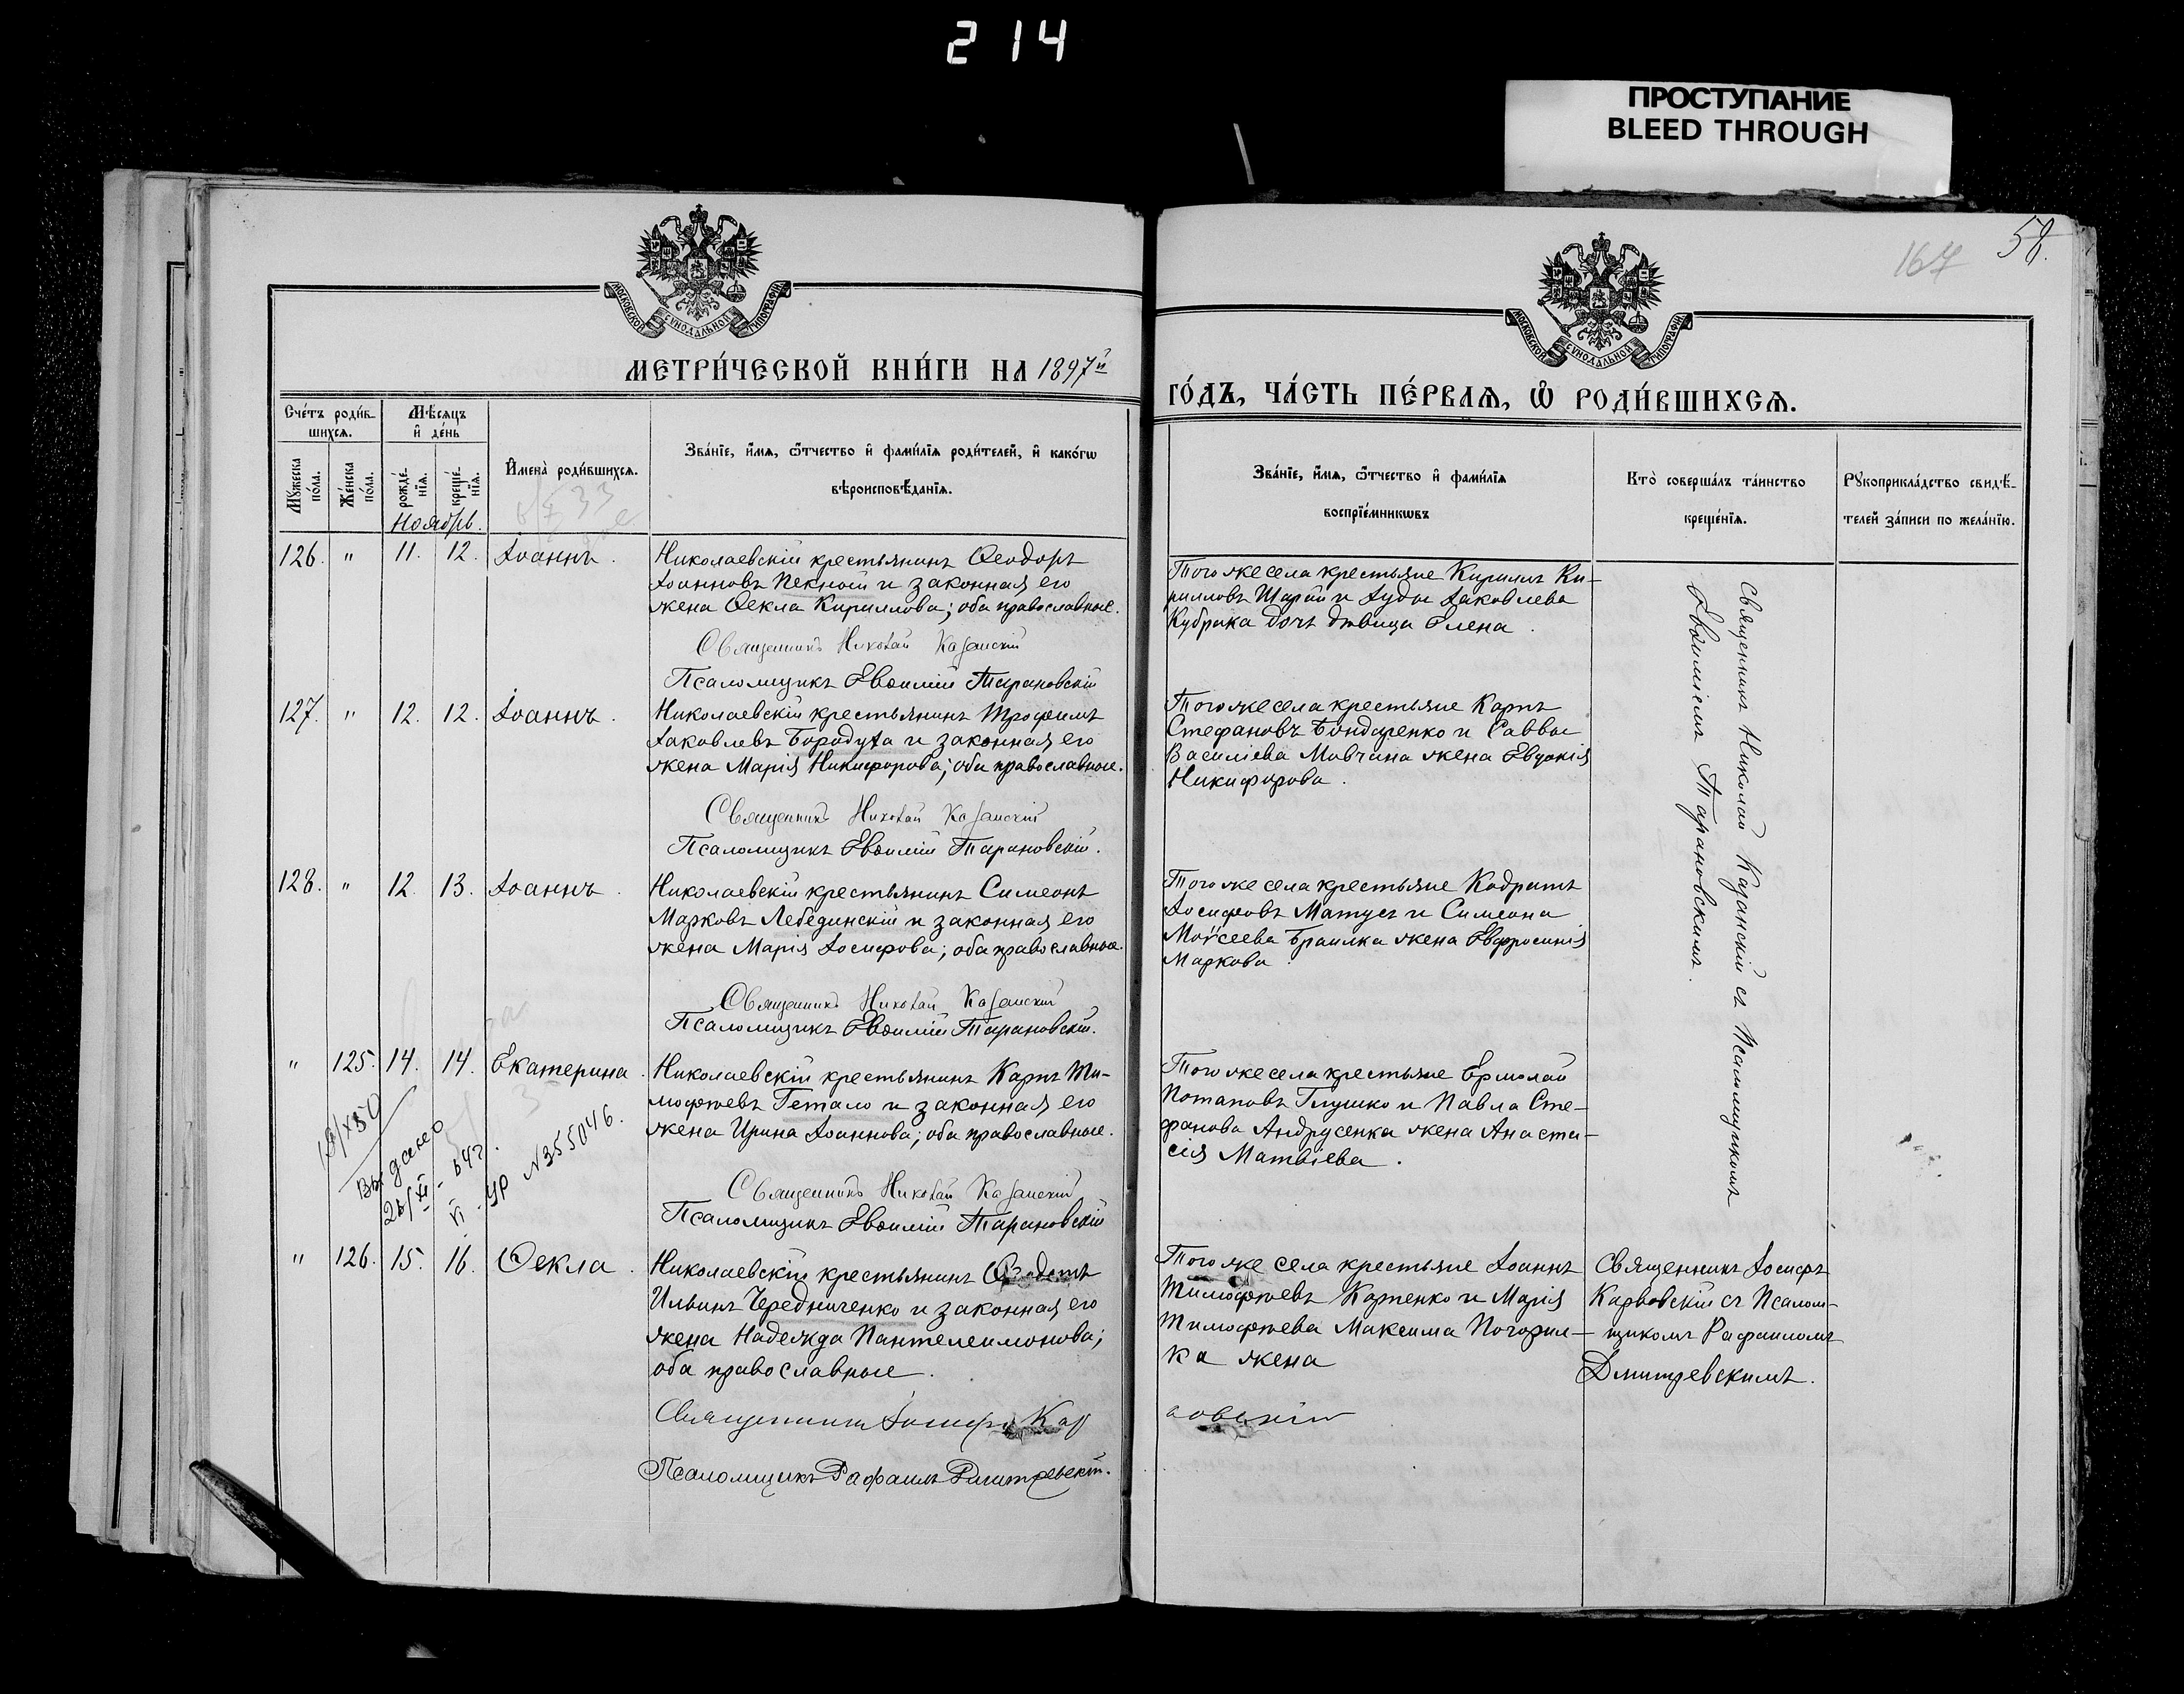 214
ПРОСТУПАНИЕ
BLEED THROUGH
58.
167
МОСКОВСКОЙ СѴНОДАЛЬНОЙ ТИПОГРАФІИ
МОСКОВСКОЙ СѴНОДАЛЬНОЙ ТИПОГРАФІИ
МЕТРИ́ЧЕСКОЙ КНИ́ГИ НА 1897й
ГО́ДЪ, ЧА́СТЬ ПЕ́РВАѦ, Ѡ҆ РОДИ́ВШИХСѦ.
Сче́тъ роди́в-
шихсѧ.
Мѣ́сѧцъ
и҆ де́нь
Мꙋ́жеска
по́ла.
Же́нска
по́ла.
рожде́-
нїѧ.
креще́-
нїѧ.
И҆мена̀ роди́вшихсѧ.
Зва́нїе, и҆́мѧ, ѻ҆́тчество и҆ фами́лїѧ роди́телей, и҆ како́гѡ
вѣроисповѣ́данїѧ.
Зва́нїе, и҆́мѧ, ѻ҆́тчество и҆ фами́лїѧ
воспрїе́мникѡвъ
Кто̀ соверша́лъ та́инство
креще́нїѧ.
Рꙋкоприкла́дство свидѣ́-
телей за́писи по жела́нїю.
Ноябрь.
126. " 11. 12. Іоаннъ.
Николаевскій крестьянинъ Ѳеодоръ
Іоанновъ Пекной и законная его
жена Ѳекла Кириллова; оба православные.
Священникъ Николай Казанскій
Псаломщикъ Евѳимій Тарановскій
Того же села крестьяне Кириллъ Ки-
рилловъ Шарай и Іуды Іаковлева
Кубрака дочь дѣвица Елена.
127. " 12. 12. Іоаннъ.
Николаевскій крестьянинъ Трофимъ
Іаковлевъ Бородута и законная его
жена Марія Никифорова; оба православные.
Священникъ Николай Казанскій
Псаломщикъ Евѳимій Тарановскій.
Того же села крестьяне Карпъ
Стефановъ Бондаренко и Саввы
Василіева Мовчана жена Евдокія
Никифорова.
128. " 12. 13. Іоаннъ.
Николаевскій крестьянинъ Симеонъ
Марковъ Лебединскій и законная его
жена Марія Іосифова; оба православные.
Священникъ Николай Казанскій
Псаломщикъ Евѳимій Тарановскій.
Того же села крестьяне Кодратъ
Іосифовъ Матусъ и Симеона
Моѵсеева Браилка жена Евфросинія
Маркова.
" 125. 14. 14. Екатерина.
Николаевскій крестьянинъ Карпъ Ти-
моѳеевъ Гетало и законная его
жена Ирина Іоаннова; оба православные.
Священникъ Николай Казанскій
Псаломщикъ Евѳимій Тарановскій
Того же села крестьяне Ермолай
Потаповъ Глушко и Павла Сте-
фанова Андрусенка жена Анаста-
сія Матвіева.
Выдано
УР N355046.
Священникъ Николай Казанскій съ Псаломщикомъ
Евѳиміемъ Тарановскимъ.
" 126. 15. 16. Ѳекла.
Николаевскій крестьянинъ
Ильинъ Чередниченко и законная его
жена Надежда Пантелеимонова;
оба православные.
Священникъ Іосифъ Кар
повскій
Псаломщикъ Рафаилъ Дмитревскій.
Того же села крестьяне Іоаннъ
Тимоѳеевъ Карпенко и Марія
Тимоѳеева Максима Погорил-
ка жена
Священникъ Іосифъ
Карповскій съ Псалом-
щикомъ Рафаиломъ
Дмитревскимъ.